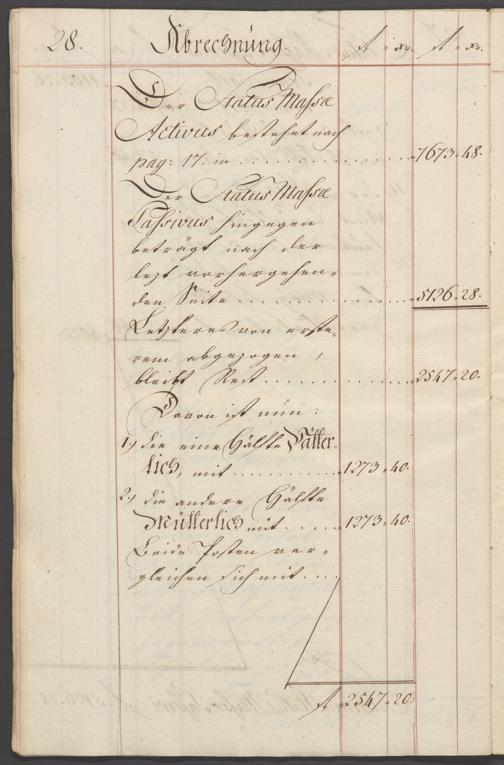 28. Abrechnung fl xr. fl xr.
Der Status Massæ
Activus bestehet nach
pag: 17. in . . . . . . . . . . 7673. 48.
Der Status Massæ
Passivus hingegen
beträgt nach der
lezt vorhergehen-
den Seite . . . . . . . . . . 5126. 28.
Letzteres von erste-
rem abgezogen,
bleibt Rest . . . . . . . . . . 2547. 20.
Davon ist nun:
1.) die eine Hälfte Vätter-
lich, mit . . . . . . . . . . 1273. 40.
2.) die andere Hälfte
Mütterlich mit . . . . . 1273. 40.
Beide Posten ver-
gleichen sich mit . . . .
fl 2547. 20.